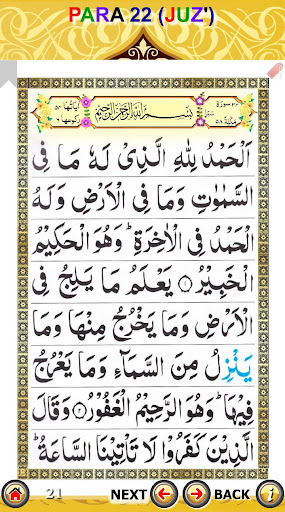 PARA 22 (JUZ')
بِسْمِ اللّٰهِ الرَّحْمٰنِ الرَّحِيْمِ
اَلْحَمْدُ لِلّٰهِ الَّذِیْ لَهٗ مَا فِی
السَّمٰوٰتِ وَمَا فِی الْاَرْضِ وَلَهُ
الْحَمْدُ فِی الْاٰخِرَةِ ؕ وَهُوَ الْحَكِیْمُ
الْخَبِیْرُ ۝۱ یَعْلَمُ مَا یَلِجُ فِی
الْاَرْضِ وَمَا یَخْرُجُ مِنْهَا وَمَا
یَنْزِلُ مِنَ السَّمَآءِ وَمَا یَعْرُجُ
فِیْهَا ؕ وَهُوَ الرَّحِیْمُ الْغَفُوْرُ ۝۲ وَقَالَ
الَّذِیْنَ كَفَرُوْا لَا تَاْتِیْنَا السَّاعَةُ ؕ
21 NEXT BACK i